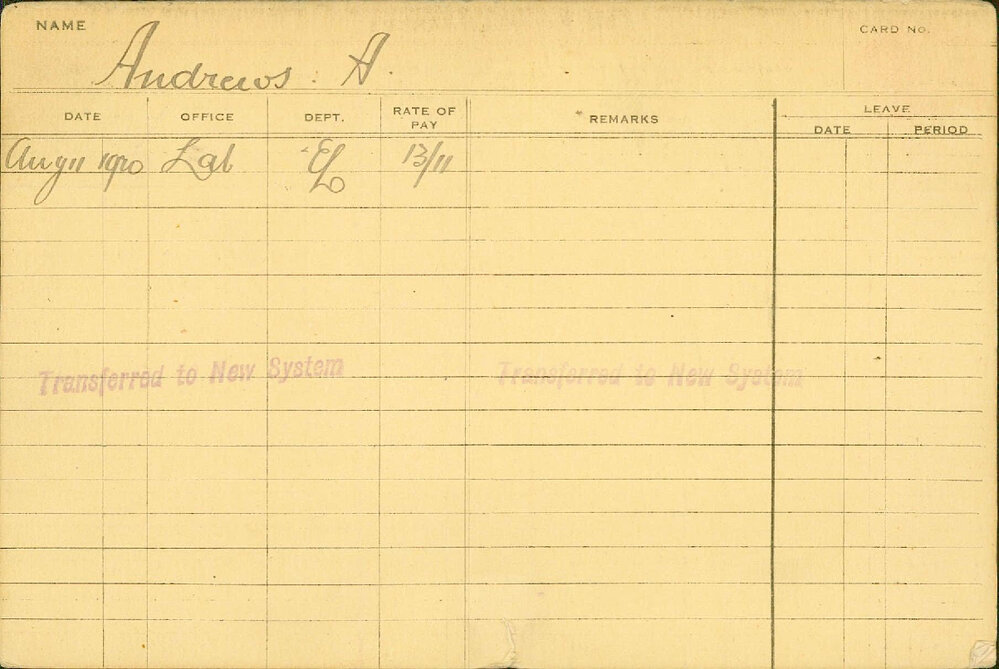 NAME
CARD No.
Andrews. A.
DATE OFFICE DEPT. RATE OF PAY REMARKS LEAVE
DATE PERIOD
Aug 11 1920 Lab 13/11
Transferred to New System Transferred to New System